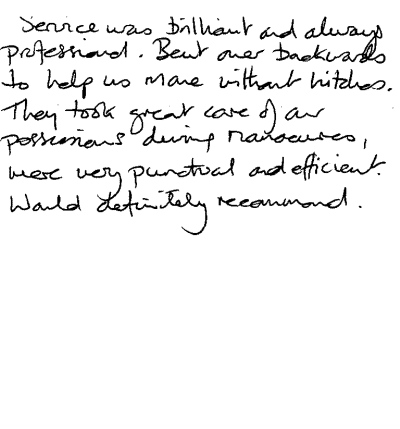 Service was brilliant and always
professional. Bent over backwards
to help us move without hitches.
They took great care of our
possessions during manoeuvres,
were very punctual and efficient.
Would definitely recommend.